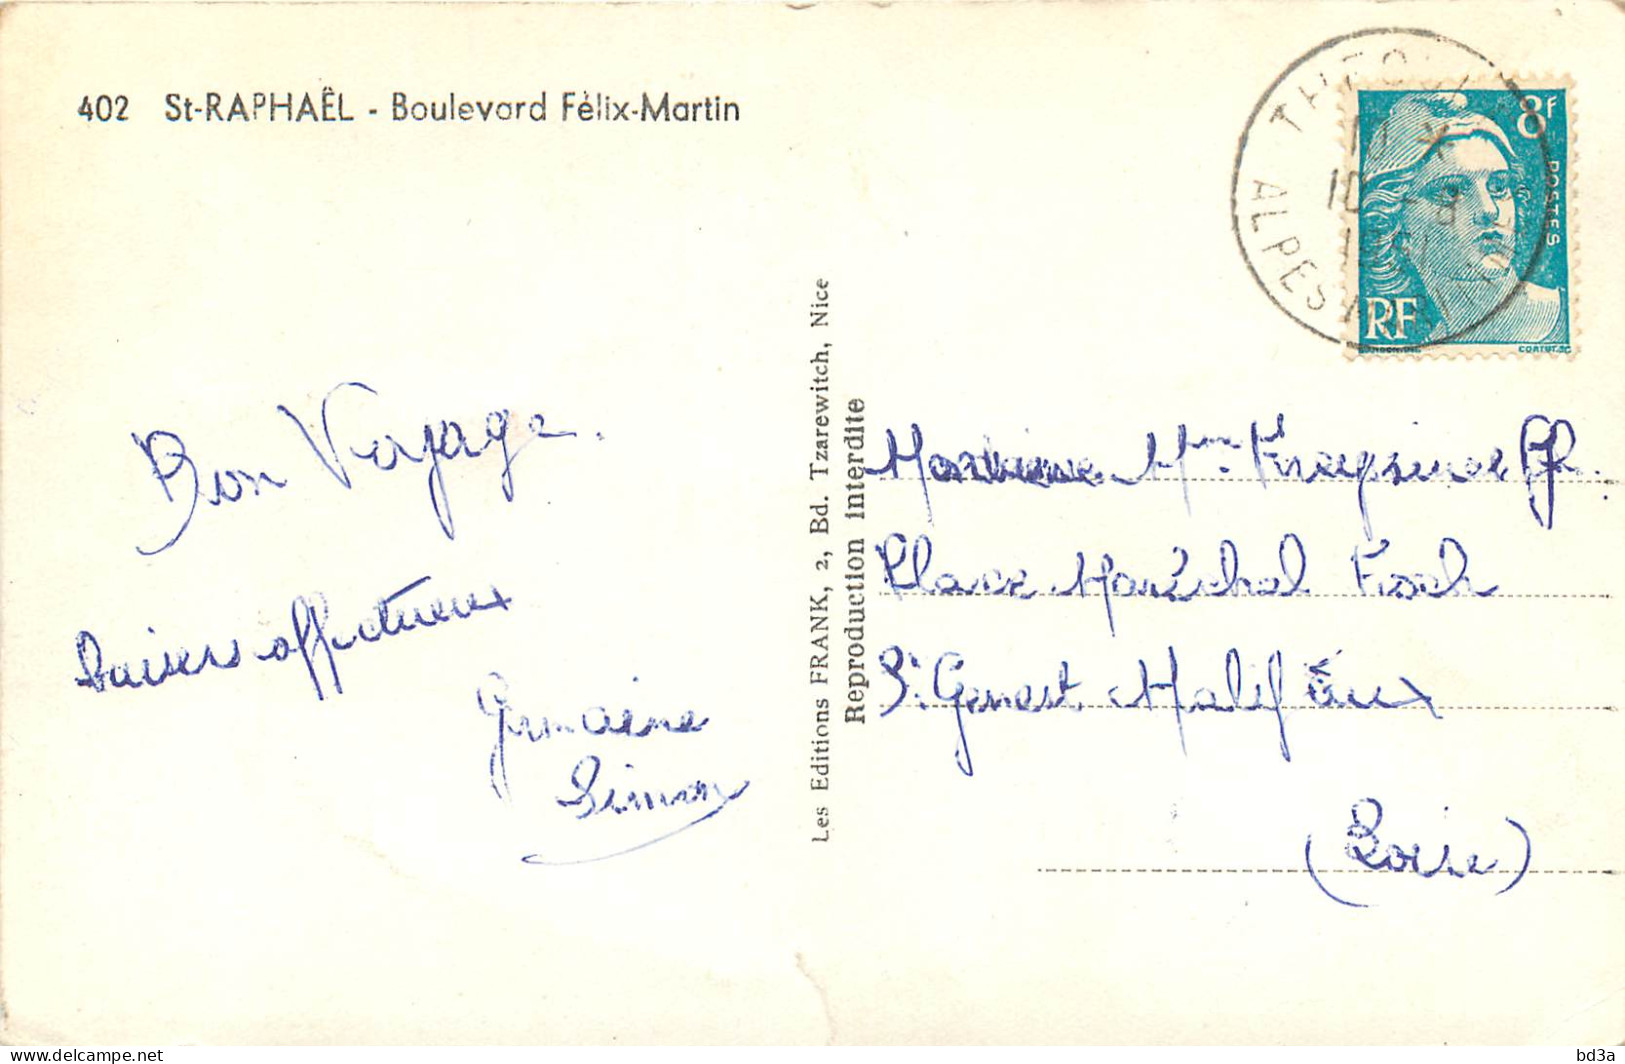 402 St-RAPHAËL - Boulevard Félix-Martin
Bon Voyage.
Baisers affectueux
Germaine
Simon
Les Editions FRANK, 2, Bd. Tzarewitch, Nice
Reproduction interdite
THEOULE
11 *
10 - 8
1951
ALPES MARITIMES
8F
POSTES
RF
GANDON.INV.
CORTOT.SC
Mme
Place Maréchal Foch
St Genest Malifaux
(Loire)
delcampe.net
bd3a